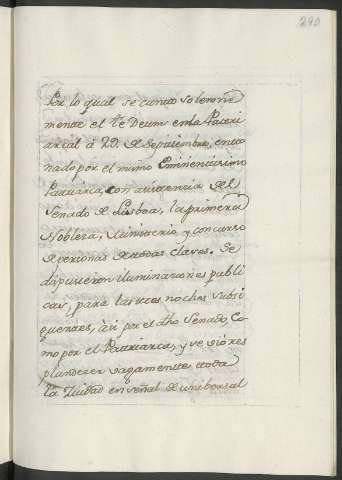 290
Por lo qual se canto solemne
mente el te Deum en la Patri
arcal à 29. de Septiembre, ento
nado por el mismo Eminentissimo
Patriarca, con assistencia del
Senado de Lisboa, la primera
Nobleza, Ministerio y concurso
de personas de todas clases. Se
dispusieron iluminaciones publi
cas, para las tres noches subsi
guientes, assi por el dho Senado, Co
mo por el Patriarca, y se vió res
plandecer vagamente toda
la Ziudad en señal de universal